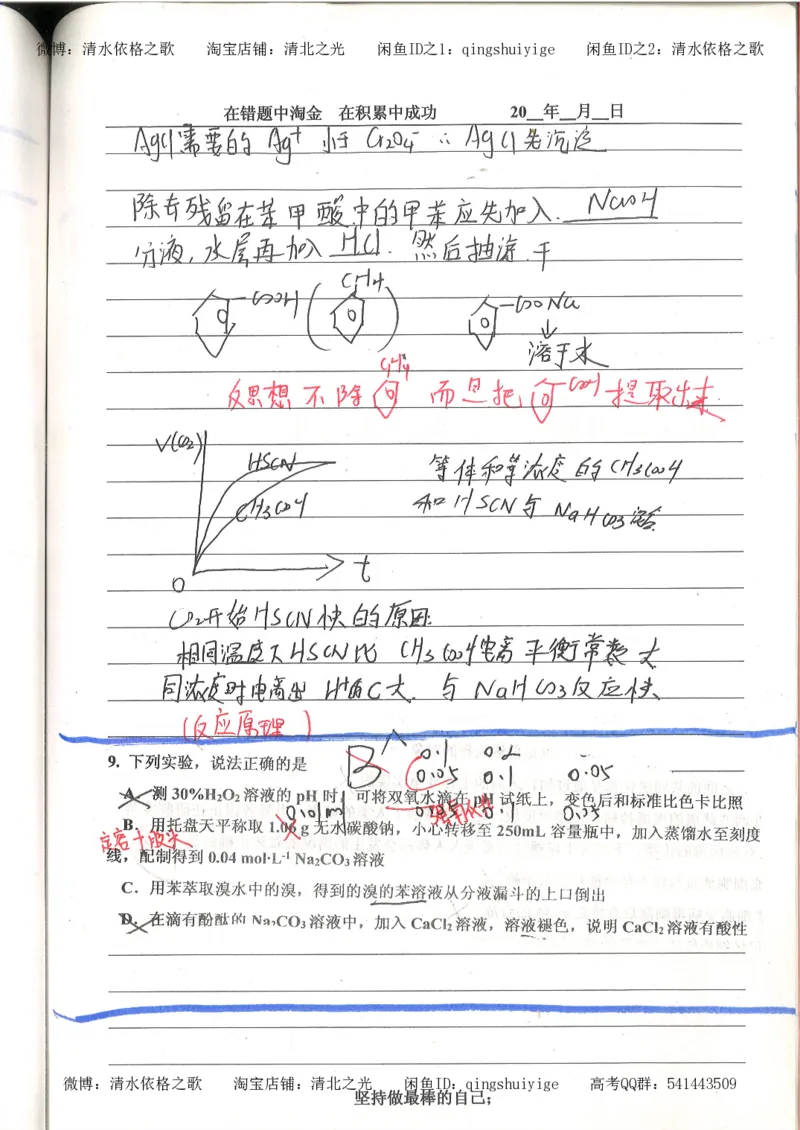 微博：清水依格之歌 淘宝店铺：清北之光 闲鱼ID之1：qingshuiyige 闲鱼ID之2：清水依格之歌
在错题中淘金 在积累中成功 20__年__月__日
AgCl需要的 Ag⁺ 小于 Cr₂O₄⁻ ∴ AgCl先沉淀
除去残留在苯甲酸中的甲苯应先加入. NaOH
分液, 水层再加入 HCl. 然后抽滤.干
COOH ( CH₄ ) COONa
溶于水
反思想不除 CH₄ 而是把 COOH 提取出来
V(CO₂)
HSCN
CH₃COOH
等体积等浓度的CH₃COOH
和HSCN与NaHCO₃溶
O t
CO₂开始HSCN快的原因:
相同温度下HSCN比 CH₃COOH电离平衡常数大
同浓度时电离出 H⁺的C大. 与NaHCO₃反应快
(反应原理)
B 0.1 0.2
0.05 0.1 0.05
9. 下列实验，说法正确的是
A. 测30%H₂O₂溶液的pH时，可将双氧水滴在pH试纸上，变色后和标准比色卡比照
0.01mol 0.1
B. 用托盘天平称取1.06 g无水碳酸钠，小心转移至250mL容量瓶中，加入蒸馏水至刻度
线，配制得到0.04 mol·L⁻¹ Na₂CO₃溶液
C. 用苯萃取溴水中的溴，得到的溴的苯溶液从分液漏斗的上口倒出
D. 在滴有酚酞的Na₂CO₃溶液中，加入CaCl₂溶液，溶液褪色，说明CaCl₂溶液有酸性
微博：清水依格之歌 淘宝店铺：清北之光 闲鱼ID：qingshuiyige 高考QQ群：541443509
坚持做最棒的自己；